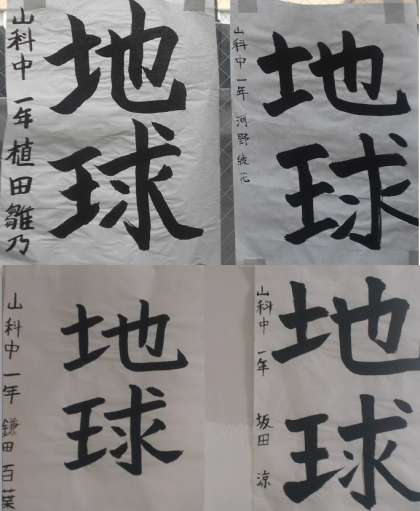 地球
山科中 一年 植田雛乃
地球
山科中 一年 河野綾花
地球
山科中 一年 鎌田百葉
地球
山科中 一年 坂田 涼